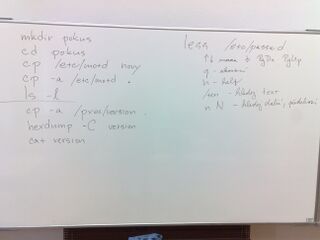 mkdir pokus
cd pokus
cp /etc/motd novy
cp -a /etc/motd .
ls -l
cp -a /proc/version .
hexdump -C version
cat version
less /etc/passwd
↑↓ PgDn PgUp
q - 
h - help
- hledej text
n N - hledej další,